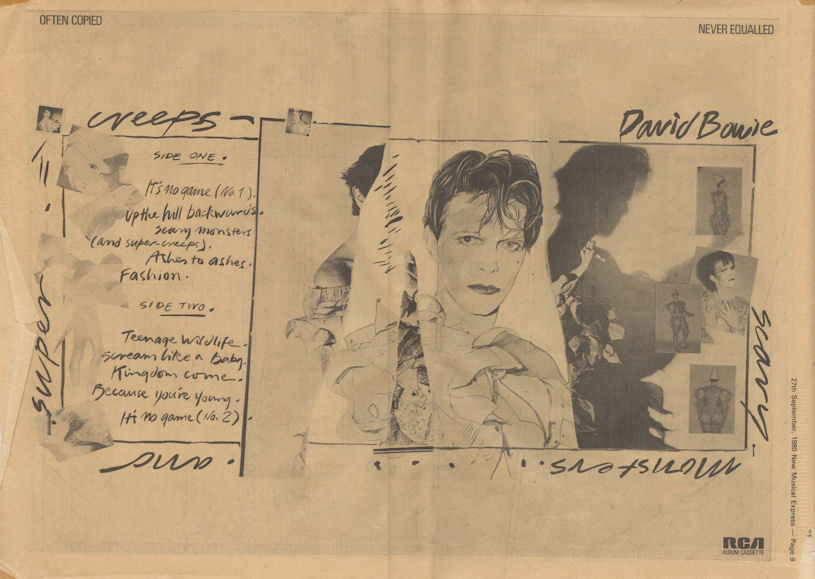 OFTEN COPIED
NEVER EQUALLED
creeps –
David Bowie
SIDE ONE.
It's no game (No. 1).
up the hill backwards.
scary monsters
(and super-creeps).
Ashes to ashes.
Fashion.
SIDE TWO.
Teenage Wildlife.
Scream like a Baby.
Kingdom come.
Because you're young.
It's no game (No. 2).
scary
monsters
and
super
27th September, 1980 New Musical Express — Page 9
RCA
ALBUM CASSETTE